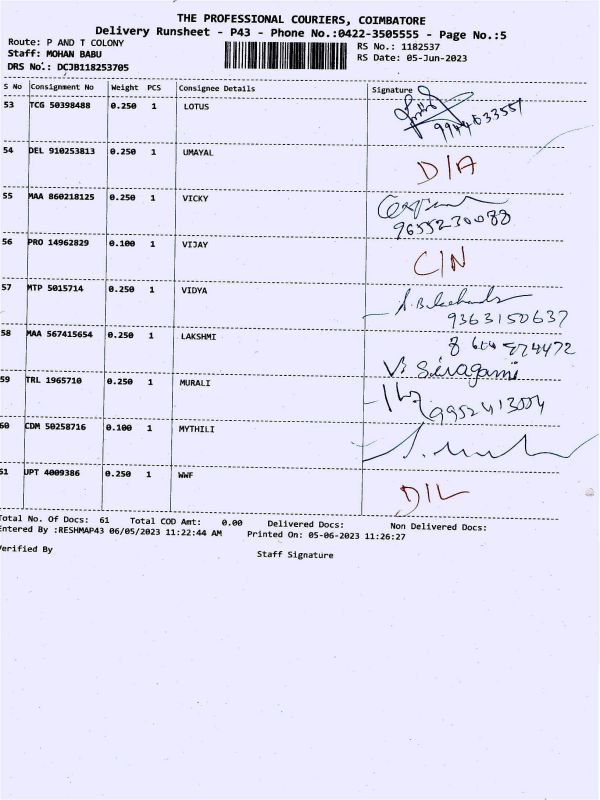 THE PROFESSIONAL COURIERS, COIMBATORE
Delivery Runsheet - P43 - Phone No.:0422-3505555 - Page No.:5
Route: P AND T COLONY
Staff: MOHAN BABU
DRS No.: DCJB118253705
RS No.: 1182537
RS Date: 05-Jun-2023
S No Consignment No Weight PCS Consignee Details Signature
53 TCG 50398488 0.250 1 LOTUS
54 DEL 910253813 0.250 1 UMAYAL D/A
55 MAA 860218125 0.250 1 VICKY
9655230088
56 PRO 14962829 0.100 1 VIJAY C/N
57 MTP 5015714 0.250 1 VIDYA
9363150637
58 MAA 567415654 0.250 1 LAKSHMI
V. Sivagami
59 TRL 1965710 0.250 1 MURALI
9952413004
60 CDM 50258716 0.100 1 MYTHILI
61 UPT 4009386 0.250 1 WWF D/L
Total No. Of Docs: 61 Total COD Amt: 0.00 Delivered Docs: Non Delivered Docs:
Entered By :RESHMAP43 06/05/2023 11:22:44 AM Printed On: 05-06-2023 11:26:27
Verified By Staff Signature